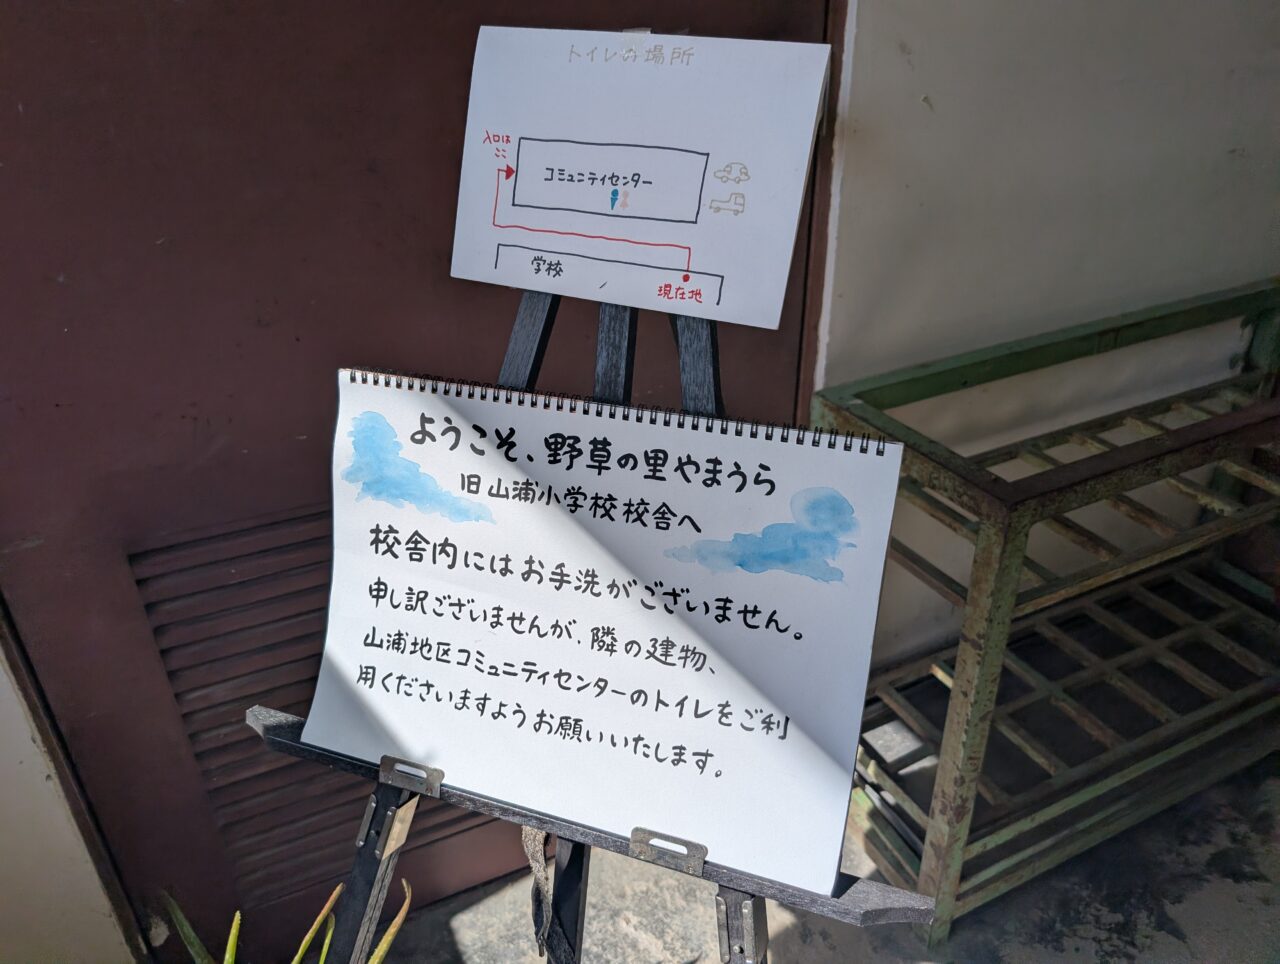 トイレの場所
入口は
ここ
コミュニティセンター
学校
現在地
ようこそ、野草の里やまうら
旧山浦小学校校舎へ
校舎内にはお手洗がございません。
申し訳ございませんが、隣の建物、
山浦地区コミュニティセンターのトイレをご利
用くださいますようお願いいたします。